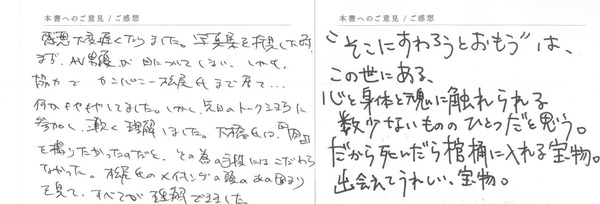 本書へのご意見 / ご感想
感想大変遅くなりました。写真集を拝見した時、
まず、AV男優が目についてしまい、しかも、
協力でカンパニー松尾氏まで居て…
何かもやもやしてました。しかし、先日のトークショウに
参加し、漸く理解しました。大橋氏は、
を撮りたかったのだと、その為の手段にはこだわら
なかった。松尾氏の
を見て、すべてが理解できました
本書へのご意見 / ご感想
"そこにすわろうとおもう"は、
この世にある、
心と身体と魂に触れられる
数少ないもののひとつだと思う。
だから死んだら棺桶に入れる宝物。
出会えてうれしい、宝物。